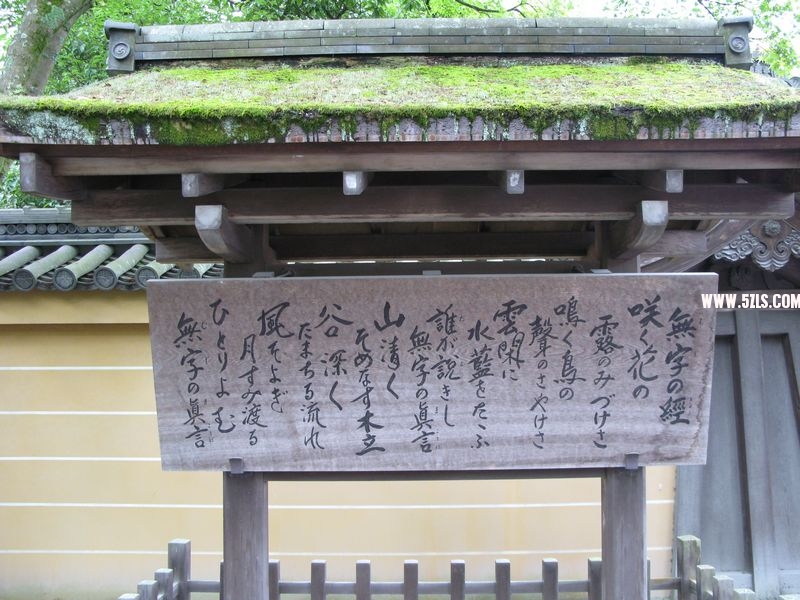 無字の經
咲く花の
露のみづけさ
鳴く鳥の
聲のさやけさ
雲閑に
水藍をたゝふ
誰が説きし
無字の真言
山清く
そめなす木立
谷深く
たまちる流れ
風そよぎ
月すみ渡る
ひとりよむ
無字の真言
WWW.5ZLS.COM